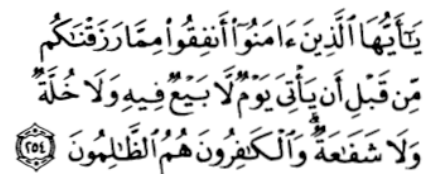 يَٰٓأَيُّهَا ٱلَّذِينَ ءَامَنُوٓا۟ أَنفِقُوا۟ مِمَّا رَزَقْنَٰكُم
مِّن قَبْلِ أَن يَأْتِىَ يَوْمٌ لَّا بَيْعٌ فِيهِ وَلَا خُلَّةٌ
وَلَا شَفَٰعَةٌ ۗ وَٱلْكَٰفِرُونَ هُمُ ٱلظَّٰلِمُونَ ﴿٢٥٤﴾